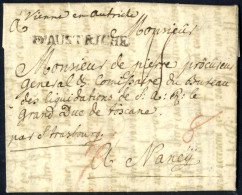 à Vienne en autriche
D'AUSTRICHE
Monsieur
Monsieur de nierre procureur
General & Commissaire du Bureau
des liquidations de S. A. R. le
Grand Duc de toscane
par Strasbourg
à Nancÿ
8